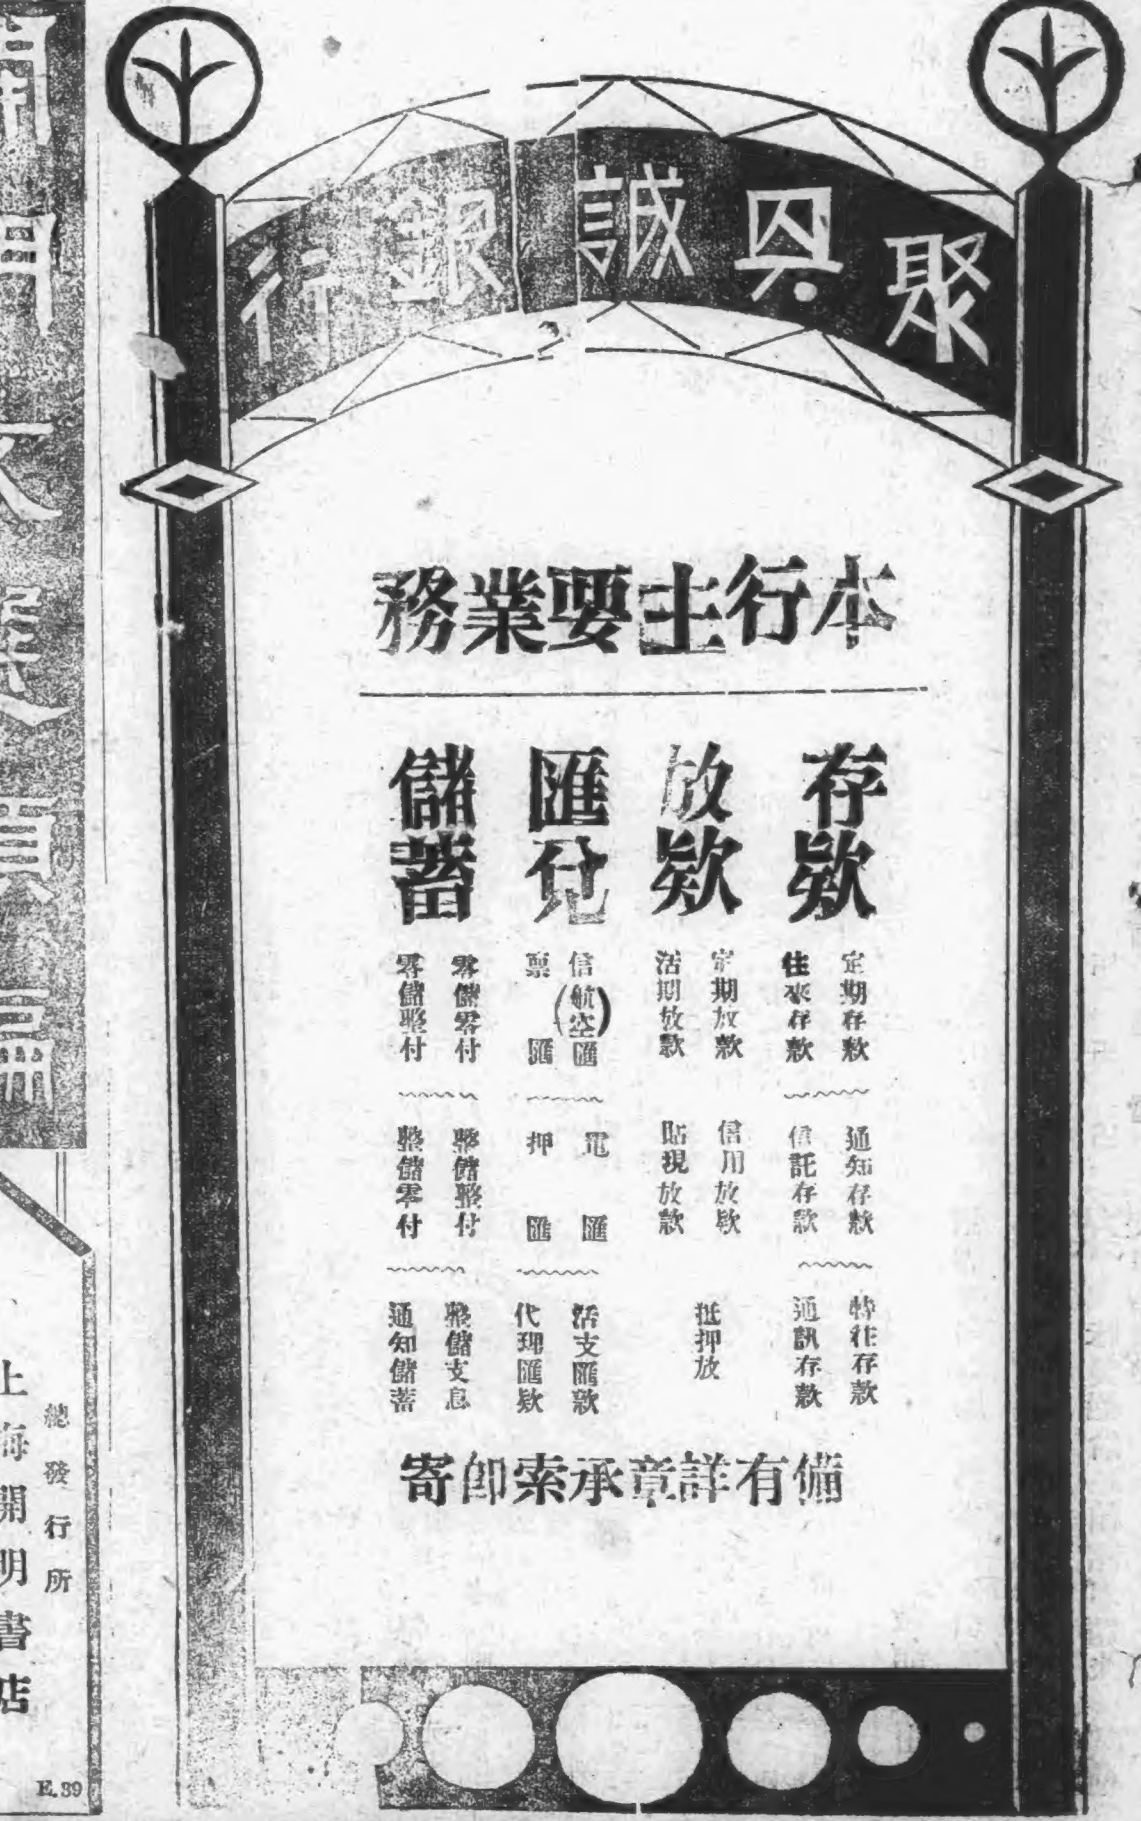 聚興誠銀行
本行主要業務
存欵
定期存欵
往來存欵
通知存欵
信託存欵
特往存欵
通訊存欵
放欵
定期放欵
活期放欵
信用放欵
貼現放欵
抵押放
匯兌
信(航空)匯
票匯
電匯
押匯
活支匯欵
代理匯欵
儲蓄
零儲零付
零儲整付
整儲整付
整儲零付
整儲支息
通知儲蓄
備有詳章承索卽寄
總發行所
上海開明書店
E.39